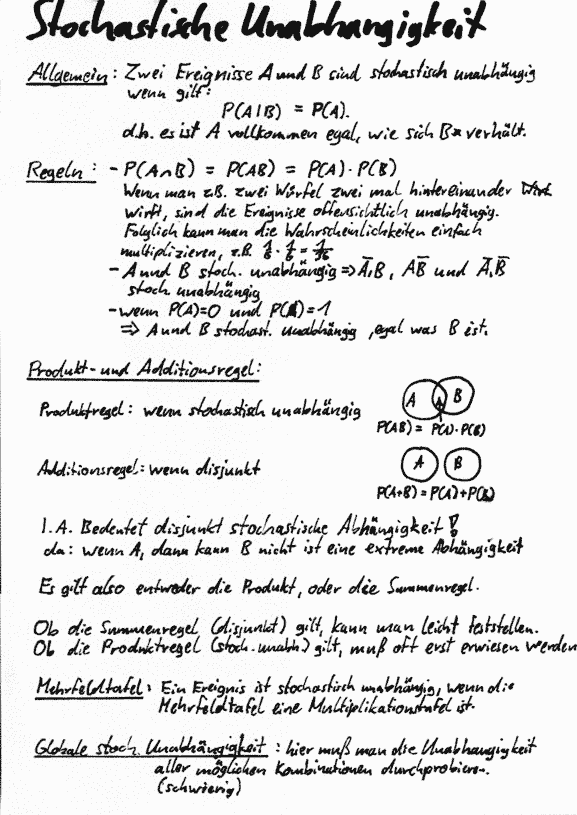 Stochastische Unabhängigkeit
Allgemein: Zwei Ereignisse A und B sind stochastisch unabhängig
wenn gilt:
P(A|B) = P(A).
d.h. es ist A vollkommen egal, wie sich B verhält.
Regeln: - P(A∩B) = P(AB) = P(A)·P(B)
Wenn man z.B. zwei Würfel zwei mal hintereinander
wirft, sind die Ereignisse offensichtlich unabhängig.
Folglich kann man die Wahrscheinlichkeiten einfach
multiplizieren, z.B. 1/6 · 1/6 = 1/36
- A und B stoch. unabhängig => A̅,B, AB̅ und A̅,B̅
stoch unabhängig
- wenn P(A)=0 und P(A)=1
=> A und B stochast. unabhängig, egal was B ist.
Produkt- und Additionsregel:
Produktregel: wenn stochastisch unabhängig
A B
P(AB) = P(A)·P(B)
Additionsregel: wenn disjunkt
A B
P(A+B) = P(A)+P(B)
I.A. Bedeutet disjunkt stochastische Abhängigkeit!
da: wenn A, dann kann B nicht ist eine extreme Abhängigkeit
Es gilt also entweder die Produkt, oder die Summenregel.
Ob die Summenregel (disjunkt) gilt, kann man leicht feststellen.
Ob die Produktregel (stoch. unabh.) gilt, muß oft erst erwiesen werden
Mehrfeldtafel: Ein Ereignis ist stochastisch unabhängig, wenn die
Mehrfeldtafel eine Multiplikationstafel ist.
Globale stoch. Unabhängigkeit: hier muß man die Unabhangigkeit
aller möglichen Kombinationen durchprobieren.
(schwierig)